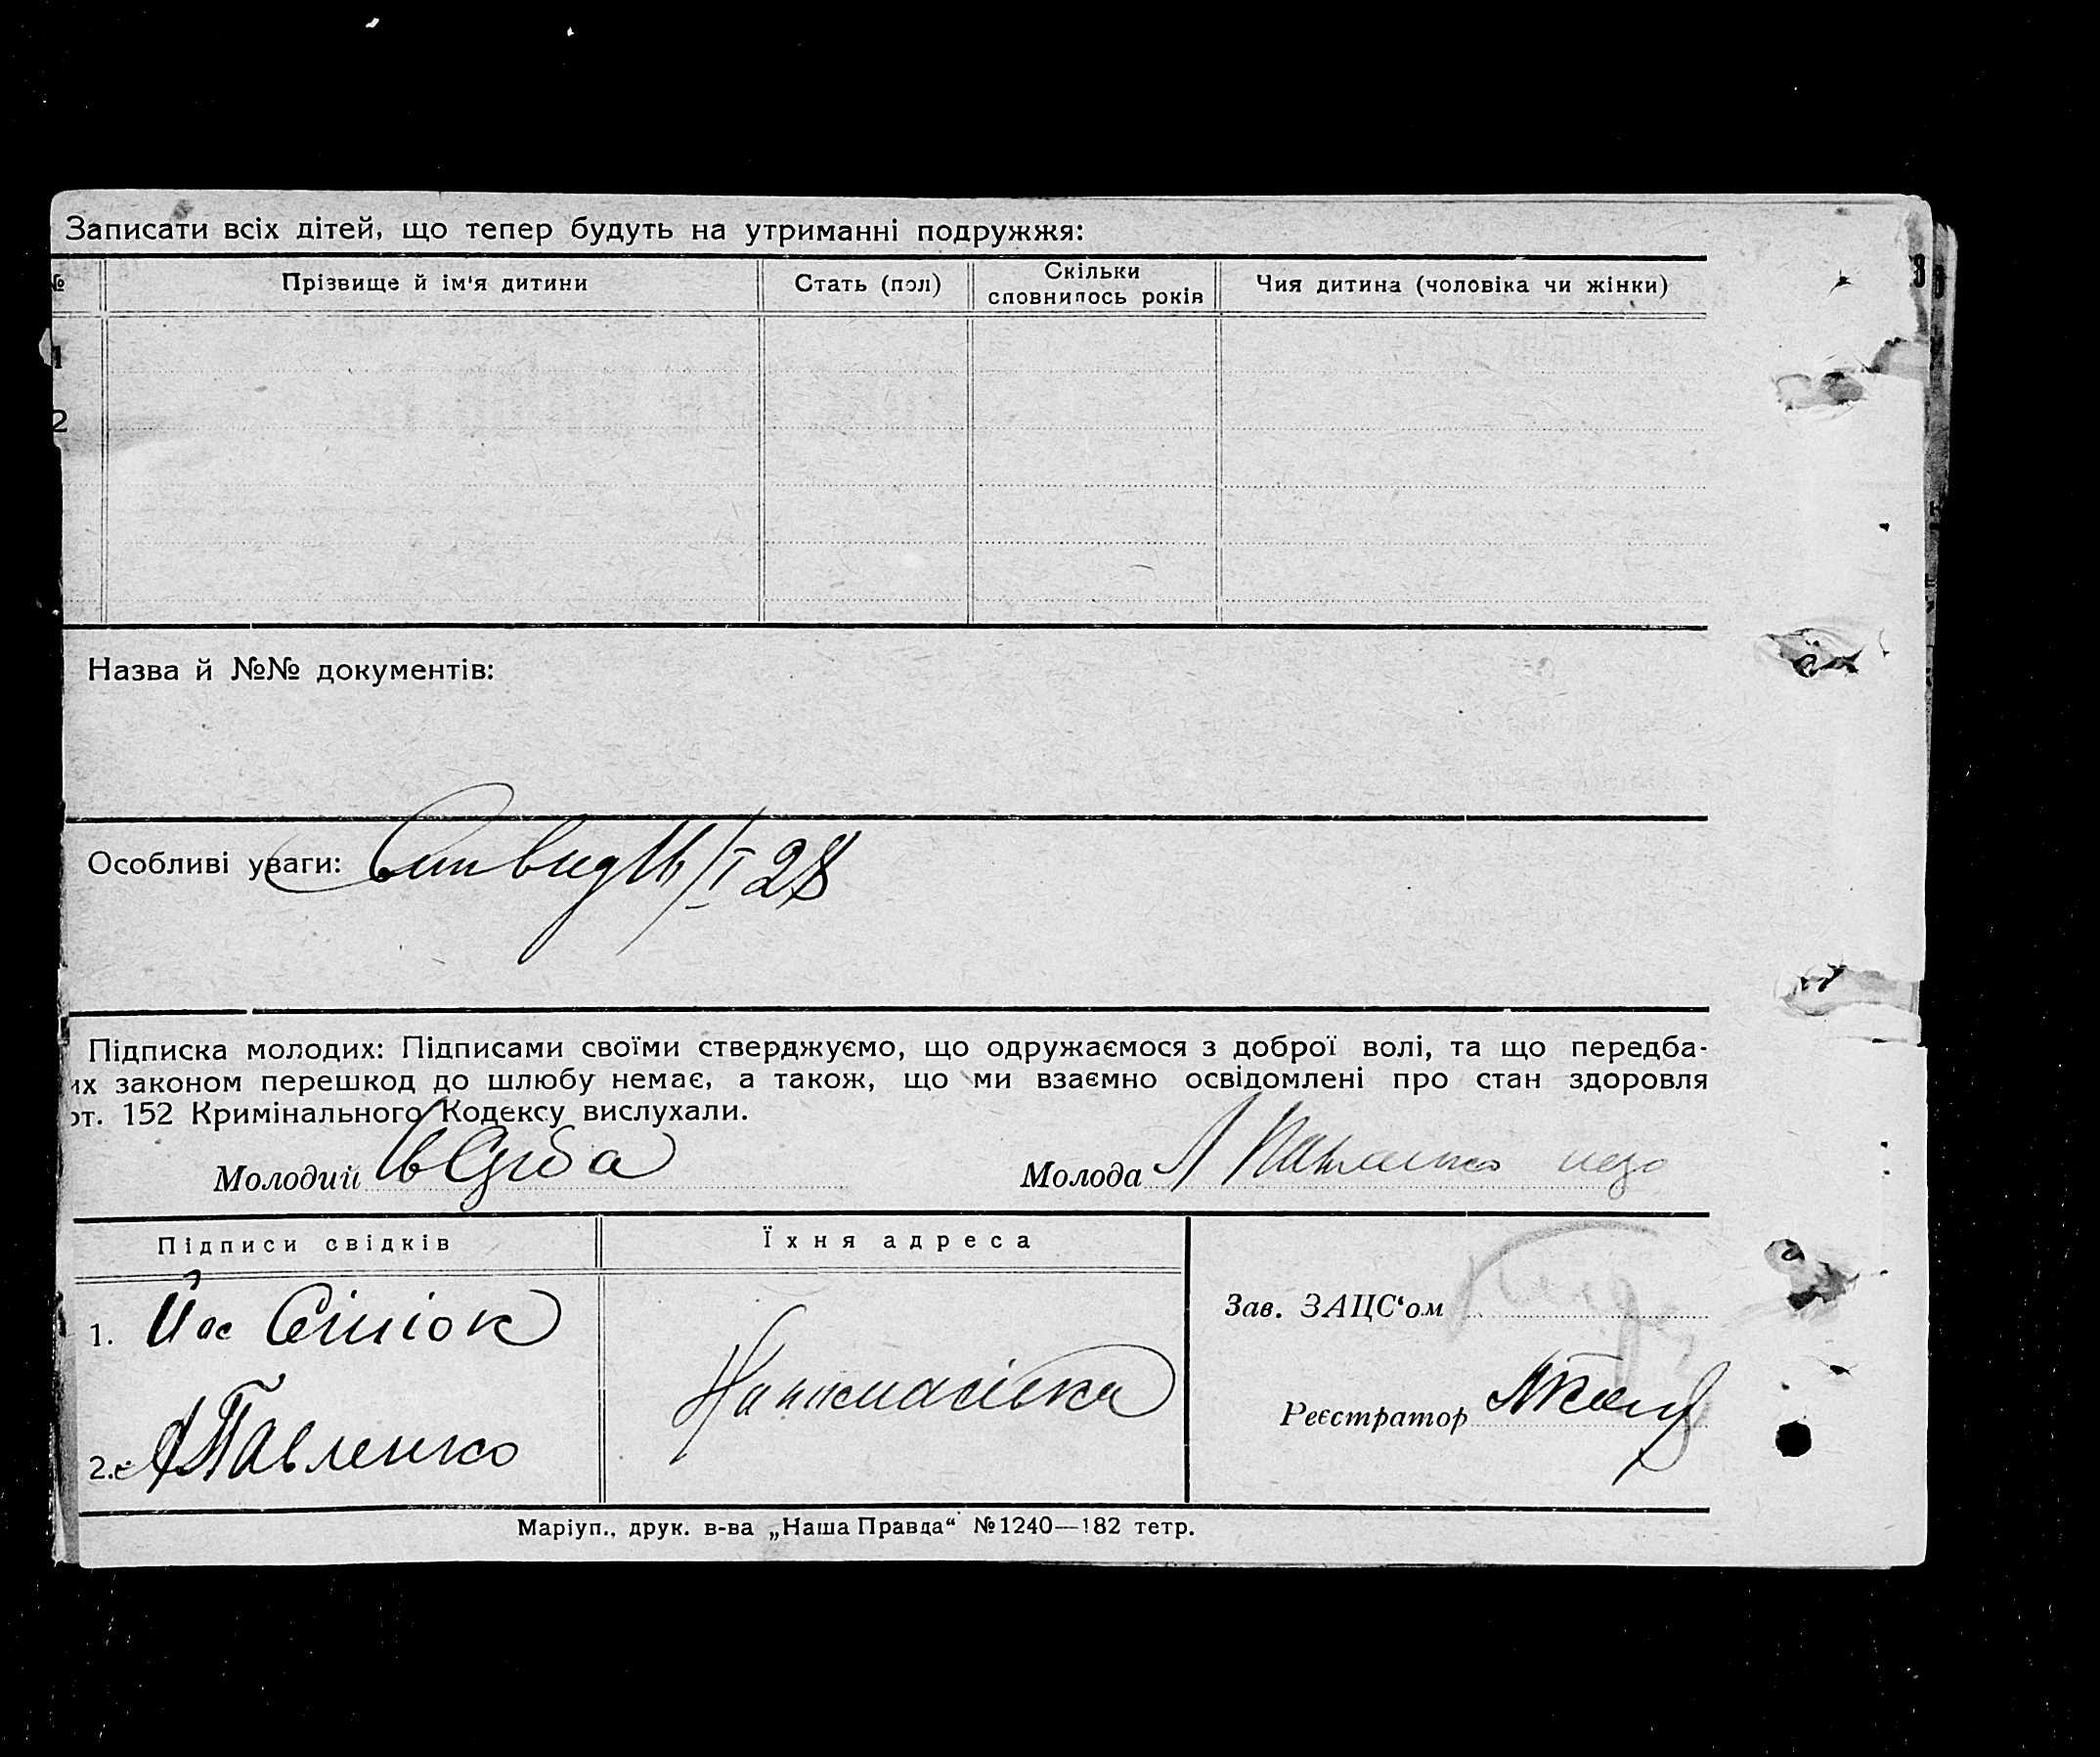 Записати всіх дітей, що тепер будуть на утриманні подружжя:
№ Прізвище й ім'я дитини Стать (пол) Скільки сповнилось років Чия дитина (чоловіка чи жінки)
1
2
Назва й №№ документів:
Особливі уваги: 28
Підписка молодих: Підписами своїми стверджуємо, що одружаємося з доброї волі, та що передба-
их законом перешкод до шлюбу немає, а також, що ми взаємно освідомлені про стан здоровля
от. 152 Кримінального Кодексу вислухали.
Молодий Молода
Підписи свідків Їхня адреса
Зав. ЗАЦС'ом
1.
Реєстратор
2. Павленко
Маріуп., друк. в-ва „Наша Правда“ №1240—182 тетр.